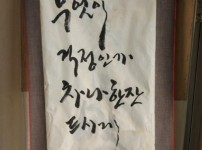 무엇이
걱정인가
차나 한잔
드시게